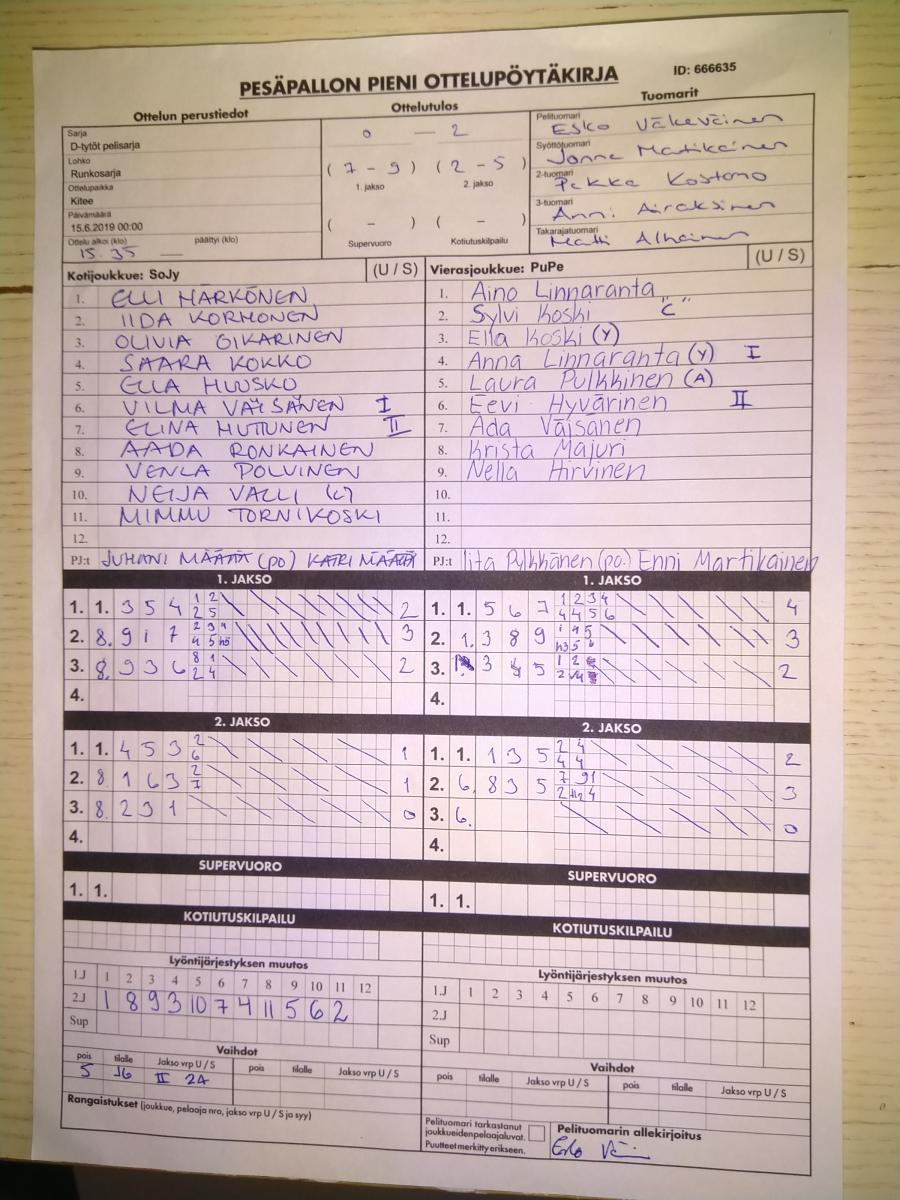 PESÄPALLON PIENI OTTELUPÖYTÄKIRJA
ID: 666635
Ottelun perustiedot
Ottelutulos
Tuomarit
Sarja
D-tytöt pelisarja
Lohko
Runkosarja
Ottelupaikka
Kitee
Päivämäärä
15.6.2019 00:00
Ottelu alkoi (klo) päättyi (klo)
15.35
0 — 2
( 7 - 9 ) ( 2 - 5 )
1. jakso 2. jakso
( - ) ( - )
Supervuoro Kotiutuskilpailu
Pelituomari
Esko Väkeväinen
Syöttötuomari
Janne Matikainen
2-tuomari
Pekka Kostamo
3-tuomari
Anni Airaksinen
Takarajatuomari
Matti
Kotijoukkue: SoJy (U / S)
1. ELLI MÄRKÖNEN
2. IIDA KORHONEN
3. OLIVIA OIKARINEN
4. SAARA KOKKO
5. ELLA HUUSKO
6. VILMA VÄISÄNEN I
7. ELINA MUTUNEN II
8. AADA RONKAINEN
9. VENLA POLVINEN
10. NEIJA VALLI (C)
11. MIMMU TORNIKOSKI
12.
PJ:t JUHANI MÄÄTTÄ (po) KATRI MÄÄTTÄ
Vierasjoukkue: PuPe (U / S)
1. Aino Linnaranta
2. Sylvi Koski "C"
3. Ella Koski (Y)
4. Anna Linnaranta (Y) I
5. Laura Pulkkinen (A)
6. Eevi Hyvärinen II
7. Ada Väisänen
8. Krista Majuri
9. Nella Hirvinen
10.
11.
12.
PJ:t Iita Pylkkänen (po.) Enni Martikainen
1. JAKSO
1. 1. 3 5 4 1 2 2
2 5
2. 8. 9 1 7 3
4 5 h5
3. 8. 9 3 6 8 1 2
2 4
4.
1. JAKSO
1. 1. 5 6 7 1 2 3 4 4
4 4 5 6
2. 1. 3 8 9 1 4 5 3
h3 5 6
3. 3 4 5 1 2 2
4.
2. JAKSO
1. 1. 4 5 3 2 1
6
2. 8 1 6 3 2 1
7
3. 8. 2 3 1 0
4.
2. JAKSO
1. 1. 1 3 5 2 4 2
4 4
2. 6. 8 3 5 7 9 1 3
3. 6. 0
4.
SUPERVUORO
1. 1.
SUPERVUORO
1. 1.
KOTIUTUSKILPAILU
KOTIUTUSKILPAILU
Lyöntijärjestyksen muutos
1.J 1 2 3 4 5 6 7 8 9 10 11 12
2.J 1 8 9 3 10 7 4 11 5 6 2
Sup
Lyöntijärjestyksen muutos
1.J 1 2 3 4 5 6 7 8 9 10 11 12
2.J
Sup
Vaihdot
pois tilalle Jakso vrp U / S pois tilalle Jakso vrp U / S
5 J6 II 2A
Vaihdot
pois tilalle Jakso vrp U / S pois tilalle Jakso vrp U / S
Rangaistukset (joukkue, pelaaja nro, jakso vrp U / S ja syy)
Pelituomari tarkastanut
joukkueidenpelaajaluvat.
Puutteet merkitty erikseen.
Pelituomarin allekirjoitus